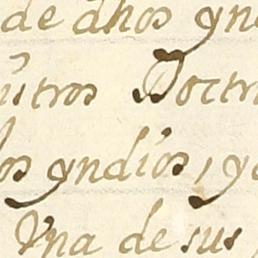 de dhos yn
utros Doctr
los yndios, y
Vna de sus